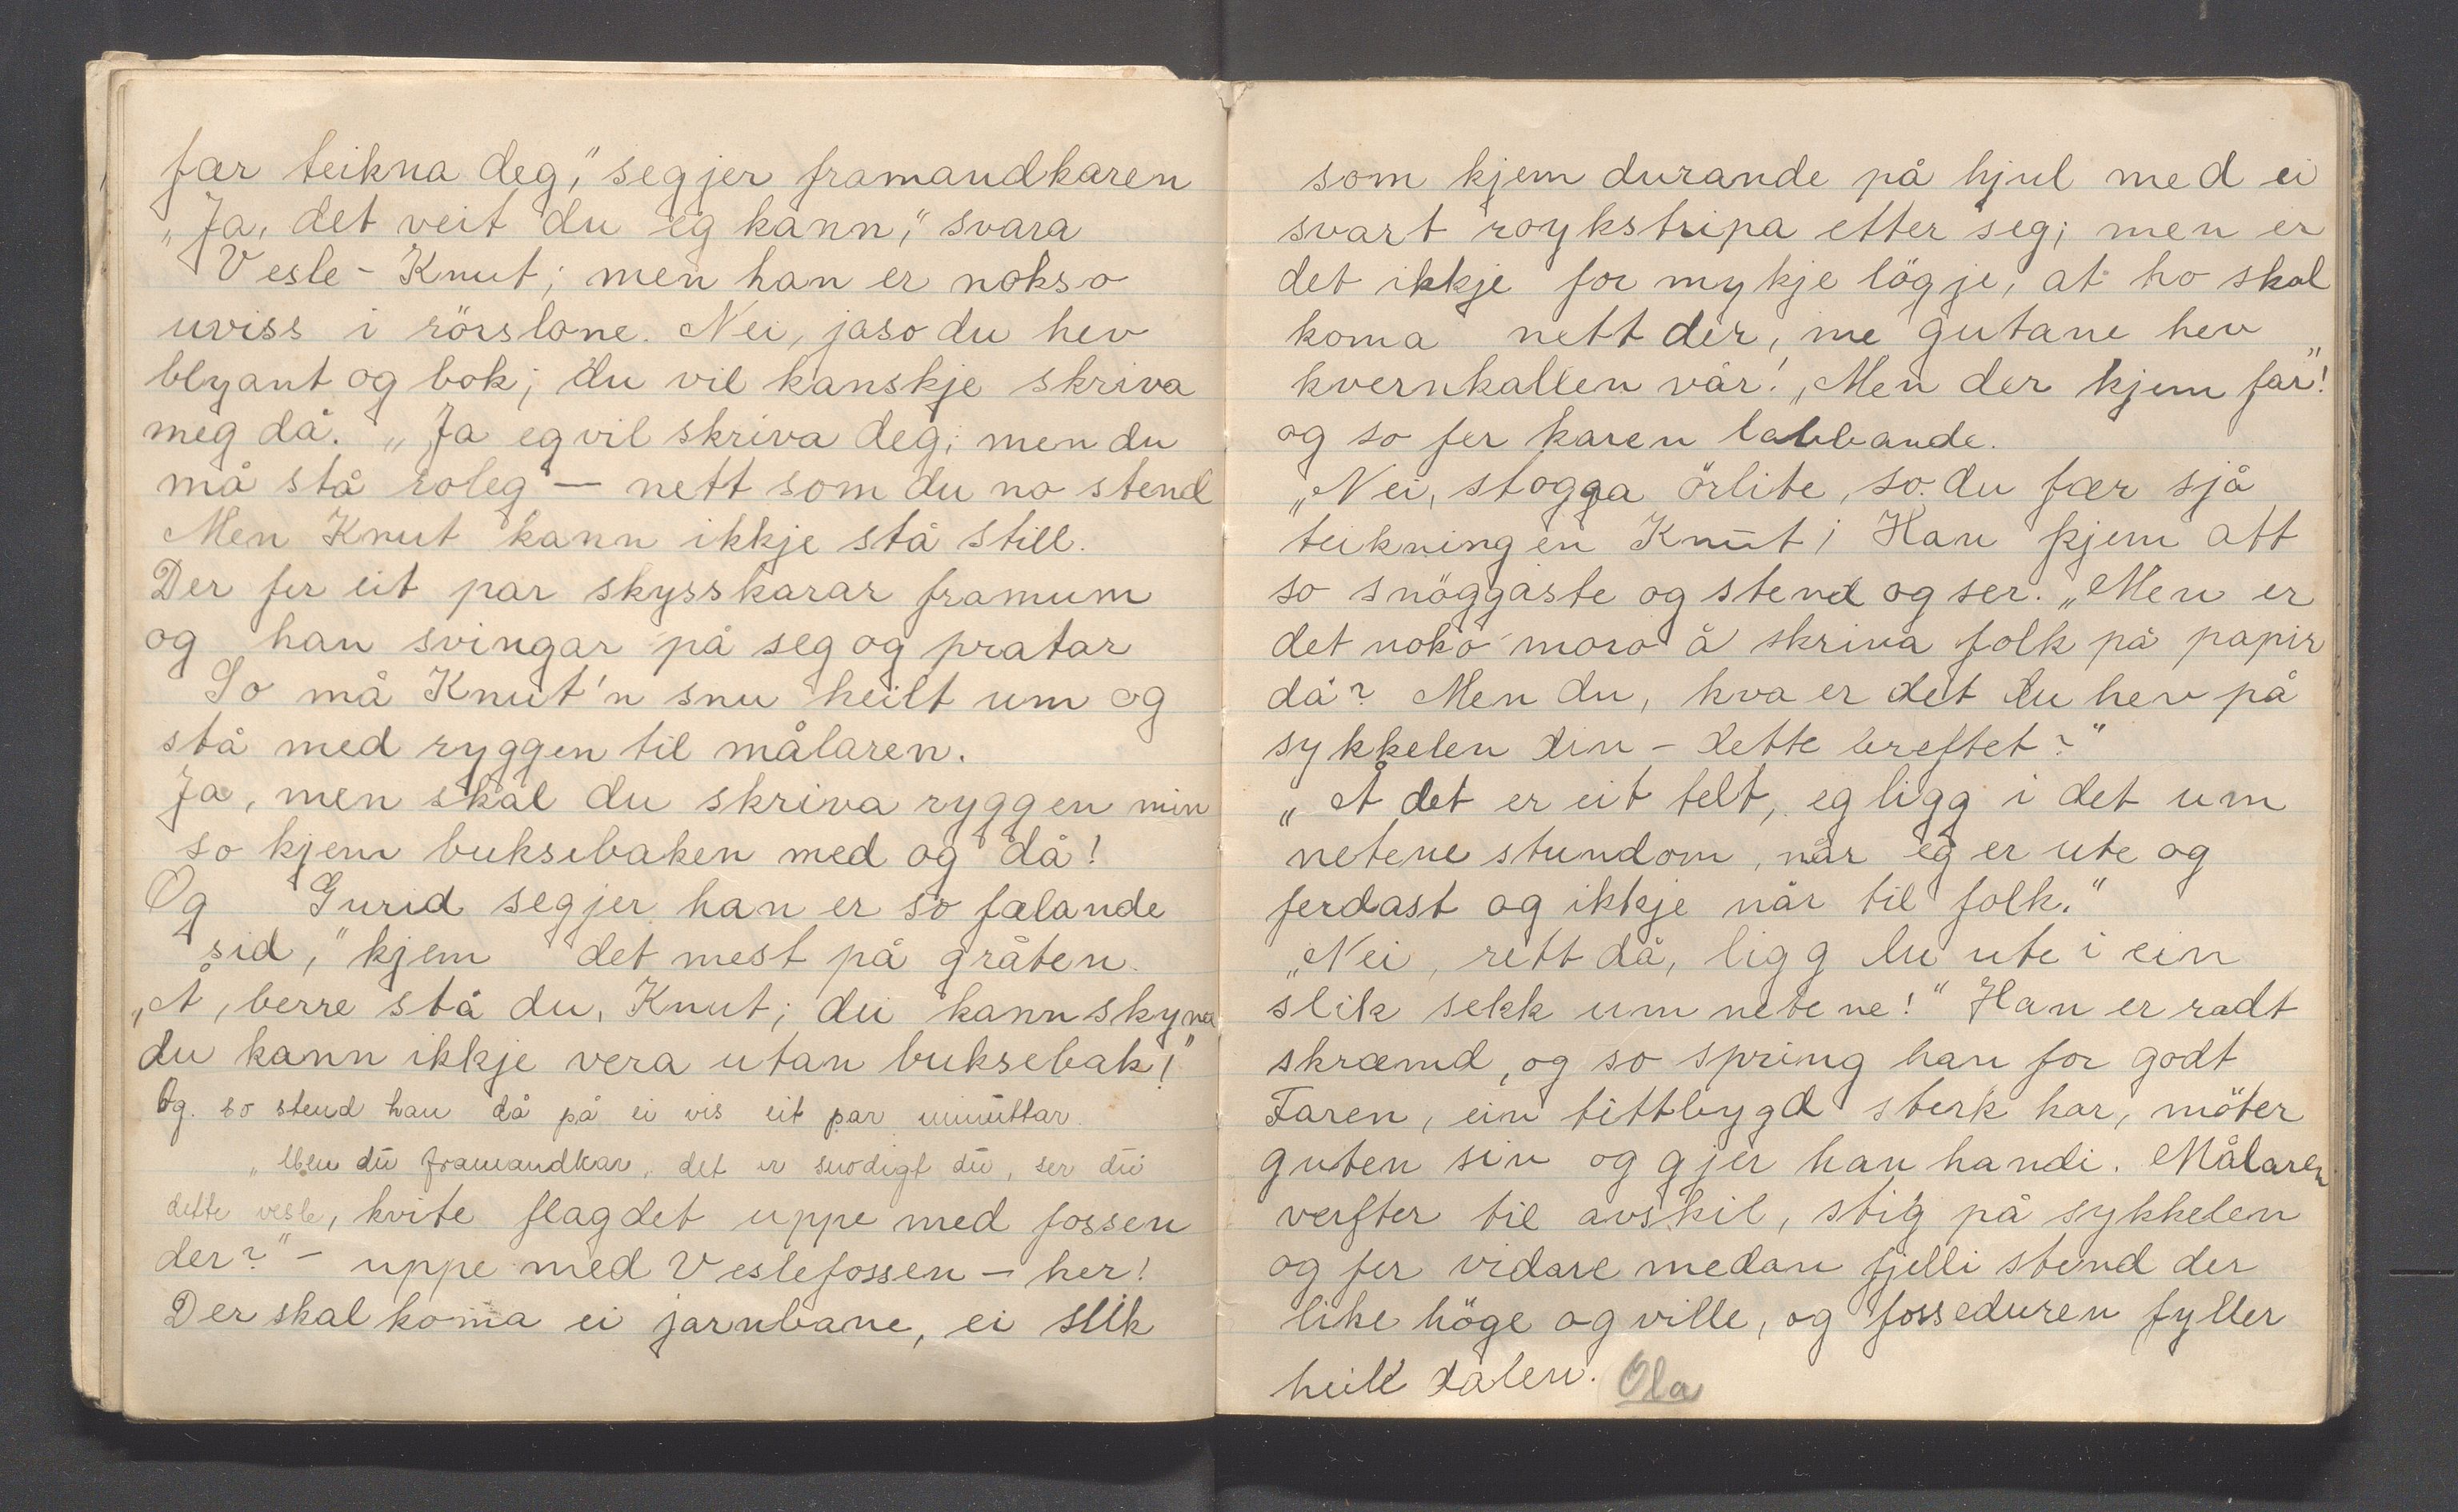 fær teikna deg," segjer framandkaren
„Ja, det veit du eg kann," svara
Vesle-Knut; men han er nokso
uviss i rörslone. Nei, jaso du hev
blyant og bok; du vil kanskje skriva
meg då. „Ja eg vil skriva deg; men du
må stå roleg" — nett som du no stend
Men Knut kann ikkje stå still.
Der fer eit par skysskarar framum
og han svingar på seg og pratar
So må Knut'n snu heilt um og
stå med ryggen til målaren.
Ja, men skal du skriva ryggen min
so kjem buksebaken med og då!
Og Gurid segjer han er so fælande
sid," kjem det mest på gråten.
„Å, berre stå du, Knut; du kann skyna
du kann ikkje vera utan buksebak!"
Og so stend han då på ei vis eit par minuttar.
„Men du framandkar, det er snodigt du, ser du
dette vesle, kvite flagdet uppe med fossen
der?" – uppe med Veslefossen – her!
Der skal koma ei jarnbane, ei slik
som kjem durande på hjul med ei
svart roykstripa etter seg; men er
det ikkje for mykje lögje, at ho skal
koma nett der, me gutane hev
kvernkallen vår! „Men der kjem far"!
og so fer karen labbande.
„Nei, stogga örlite, so du fær sjå
teikningen Knut! Han kjem att
so snöggaste og stend og ser. „Men er
det noko moro å skriva folk på papir
då? Men du, hva er det du hev på
sykkelen din – dette breftet?"
„Å det er eit telt, eg ligg i det um
netene stundom, når eg er ute og
ferdast og ikkje når til folk."
„Nei, rett då, ligg du ute i ein
slik sekk um netene!" Han er radt
skræmd, og so spring han for godt
Faren, ein tettbygd sterk kar, möter
guten sin og gjer han handi. Målaren
verfter til avskil, stig på sykkelen
og fer vidare medan fjelli stend der
like höge og ville, og fosseduren fyller
heile dalen. Ola